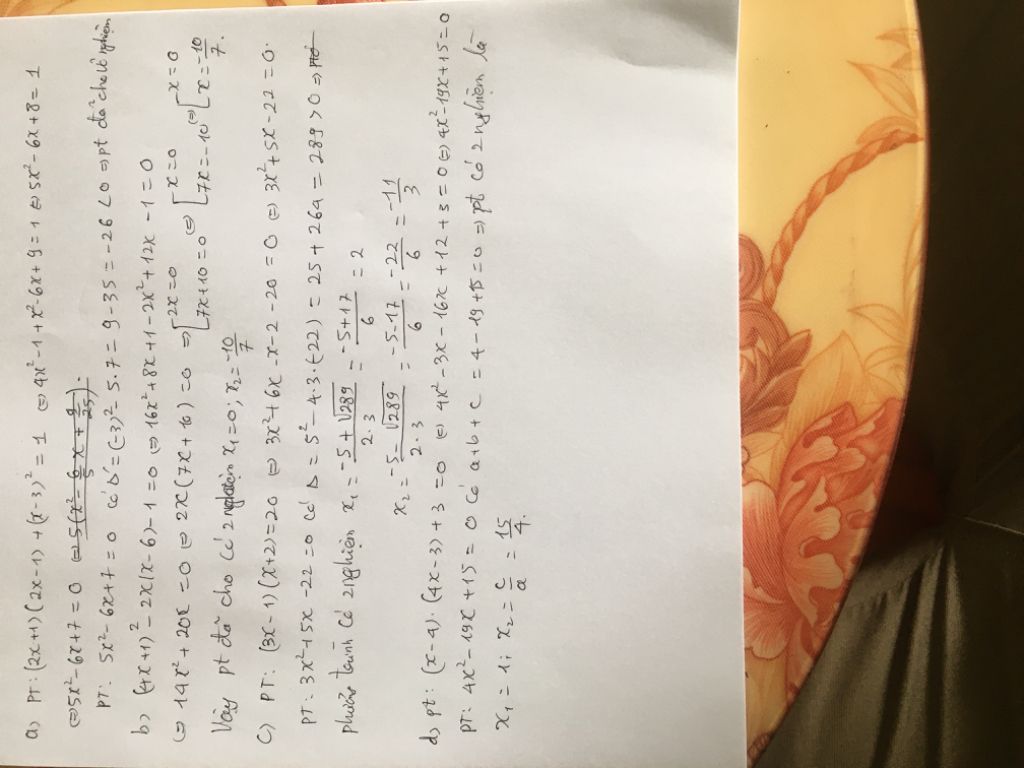 a) PT: (2x+1)(2x-1) + (x-3)² = 1 ⇔ 4x²-1+x²-6x+9=1 ⇔ 5x²-6x+8=1
⇔ 5x²-6x+7=0 ⇔ 5(x²-6/5x+9/25).
PT: 5x²-6x+7=0 có Δ'=(-3)²-5.7=9-35=-26<0 ⇒ pt đã cho vô nghiệm
b) (4x+1)²-2x(x-6)-1=0 ⇔ 16x²+8x+1-2x²+12x-1=0
⇔ 14x²+20x=0 ⇔ 2x(7x+10)=0 ⇒ [2x=0 7x+10=0 ⇔ [x=0 7x=-10 ⇔ [x=0 x=-10/7.
Vậy pt đã cho có 2 nghiệm x₁=0; x₂=-10/7
c) PT: (3x-1)(x+2)=20 ⇔ 3x²+6x-x-2-20=0 ⇔ 3x²+5x-22=0.
PT: 3x²+5x-22=0 có Δ=5²-4.3.(-22)=25+264=289>0 ⇒
phương trình có 2 nghiệm x₁=(-5+√289)/(2.3)=(-5+17)/6=2
x₂=(-5-√289)/(2.3)=(-5-17)/6=-22/6=-11/3
d) pt: (x-4).(4x-3)+3=0 ⇔ 4x²-3x-16x+12+3=0 ⇔ 4x²-19x+15=0
PT: 4x²-19x+15=0 có a+b+c=4-19+15=0 ⇒ pt có 2 nghiệm là
x₁=1; x₂=c/a=15/4.